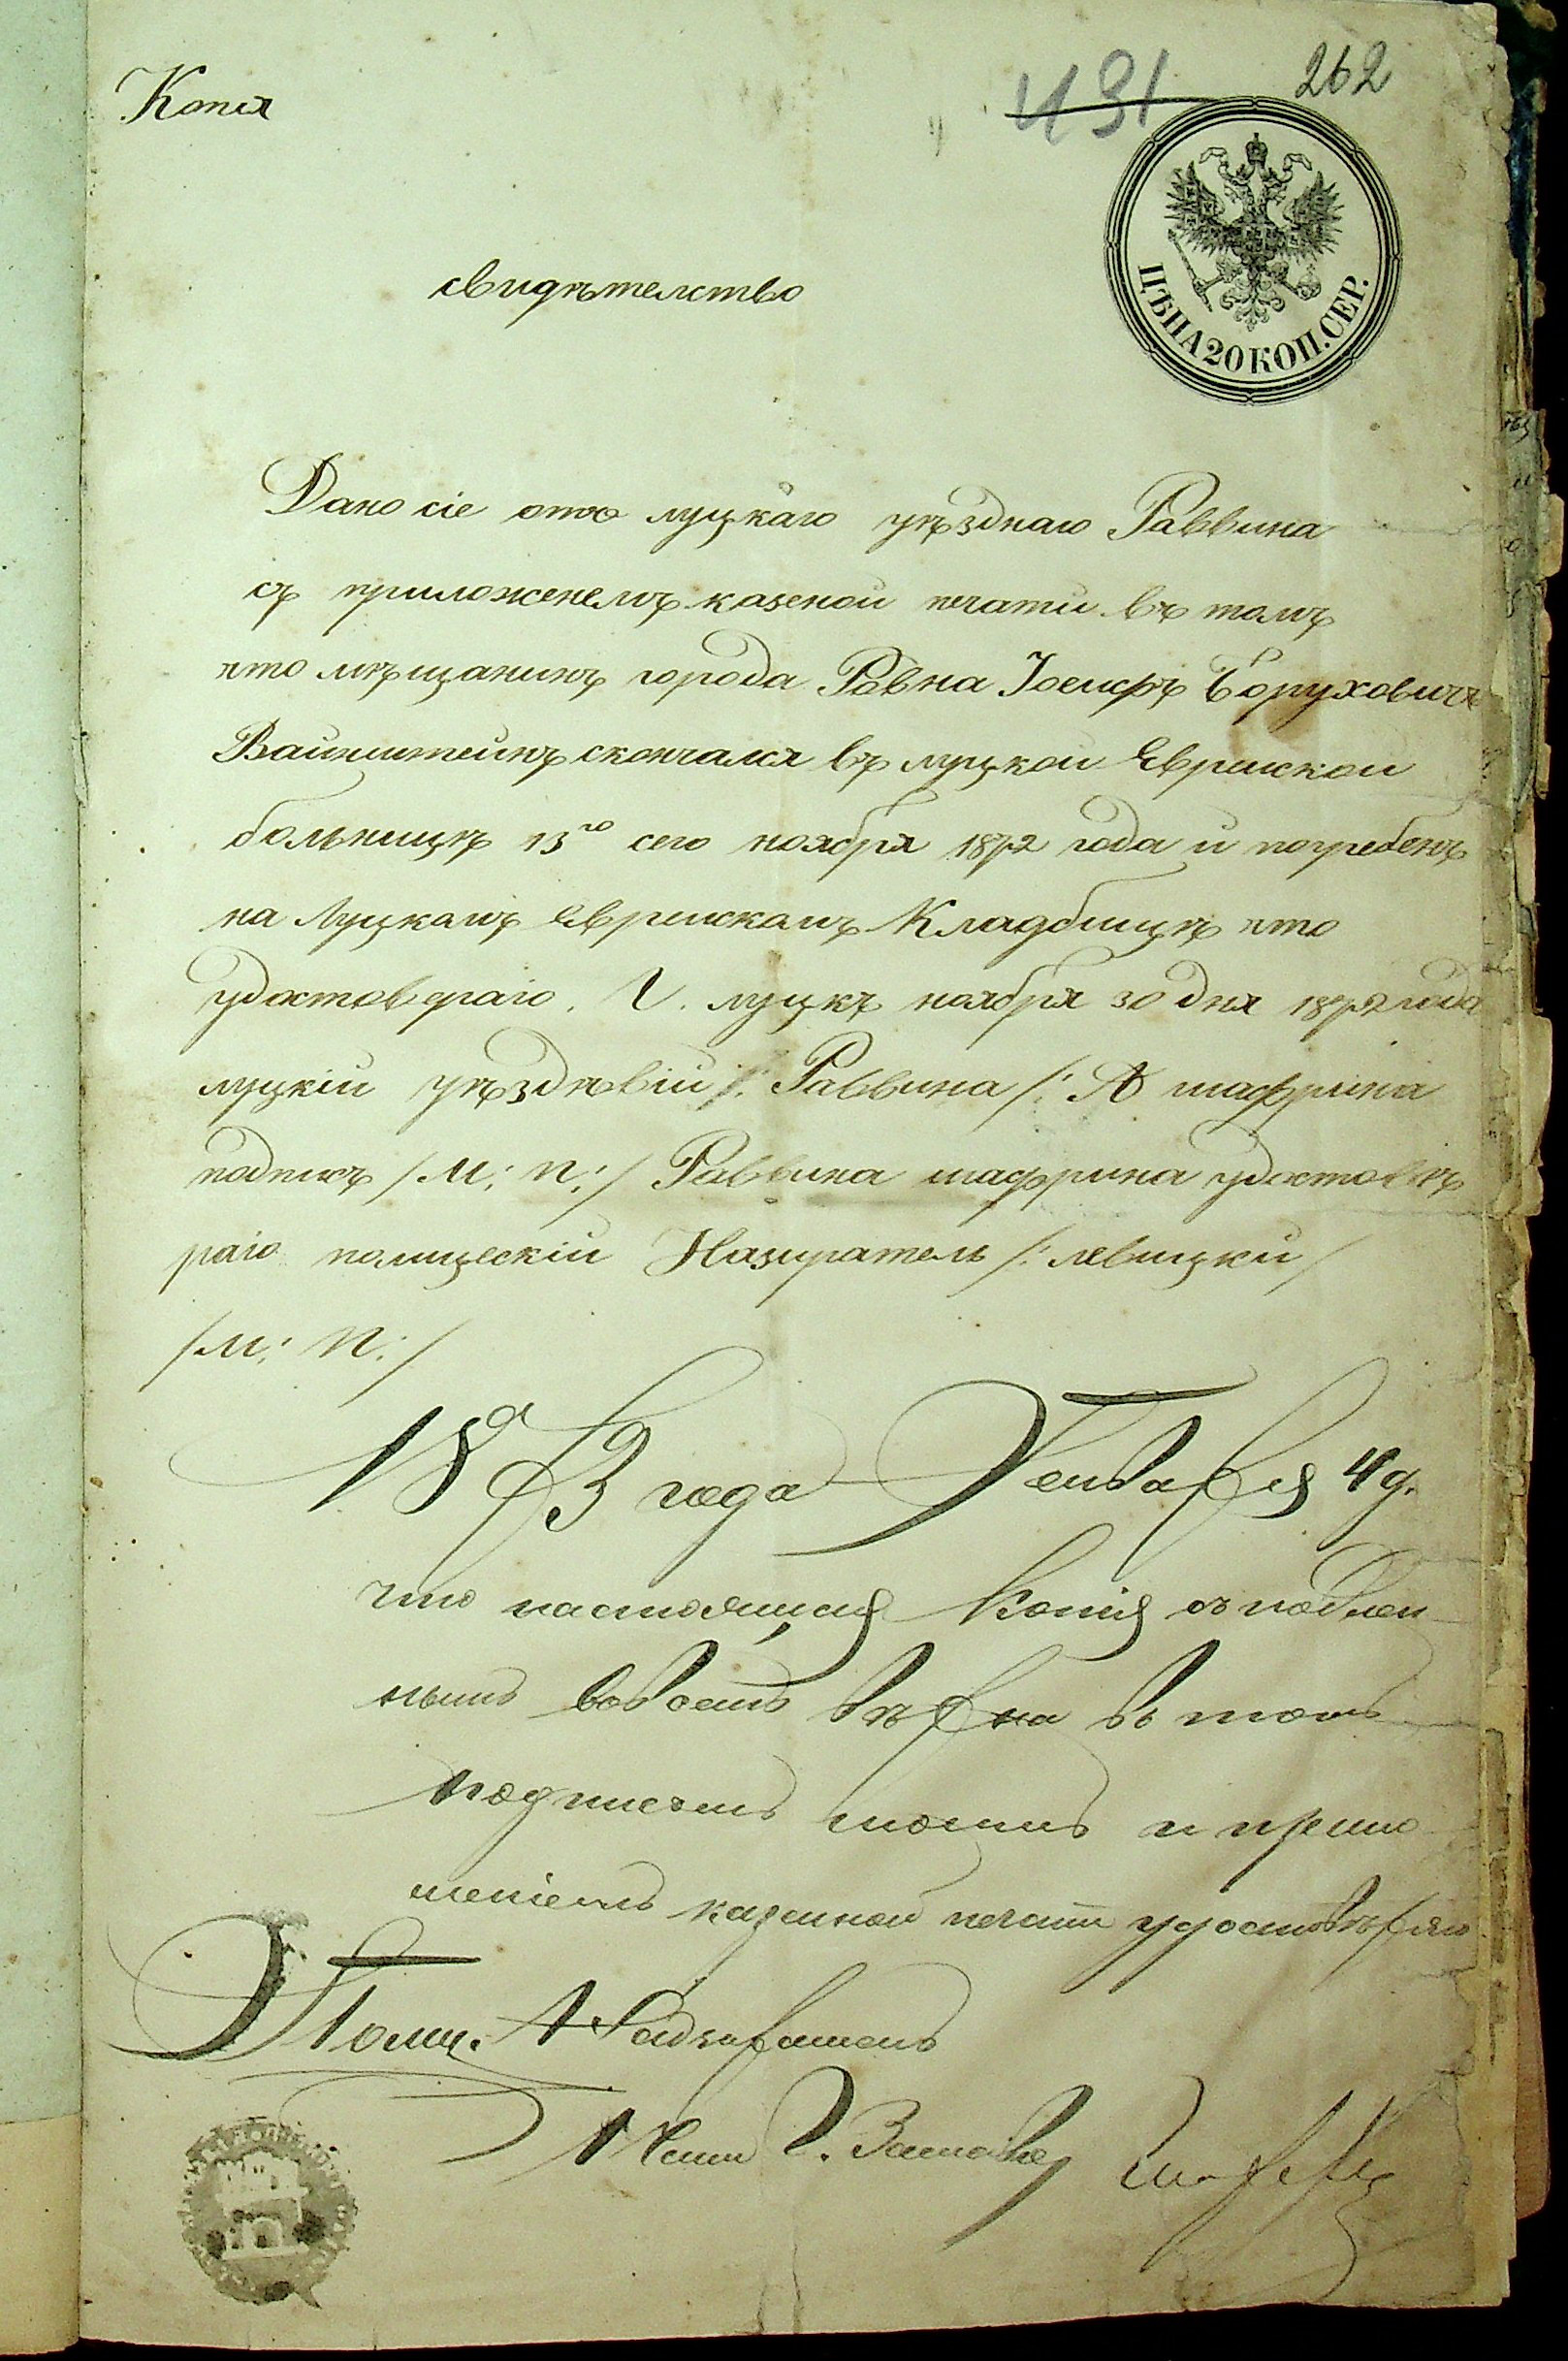 Копія
431
262
ЦѢНА 20 КОП. СЕР.
свидѣтелство
Дано сіе отъ луцкаго уѣзднаго Раввина
съ приложенемъ казеной печати въ томъ
что мѣщанинъ города Ровна Іосифъ Боруховичъ
Вайнштейнъ скончался въ луцкой Еврейской
больницѣ 13го сего ноября 1872 года и погребенъ
на Луцкамъ Еврейскамъ Кладбищѣ что
удостовѣраю. Г. луцкъ ноября 30 дня 1872 года
луцкій уѣздный /: Раввина /: А шафрина
подписъ /М: П:/ Раввина шафрина удостовѣ
раю полицескій Назиратель /: левицки /
/М: П:/
1873 года Генваря 4 д.
что настоящая Копія съ подлен
нымъ во всемъ вѣрна въ томъ
подписомъ моимъ и прило
женіемъ казенной печати удостовѣряю
Полиц. Надзиратель